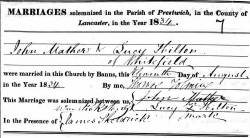 MARRIAGES solemnized in the Parish of Prestwich, in the County
of Lancaster, in the Year 1834
7
John Mather & Lucy Hilton
of Whitefield
were married in this Church by Banns, this Eleventh Day of August
in the Year 1834 By
This Marriage was solemnized between us, John Mather
Lucy Hilton
In the Presence of James mark